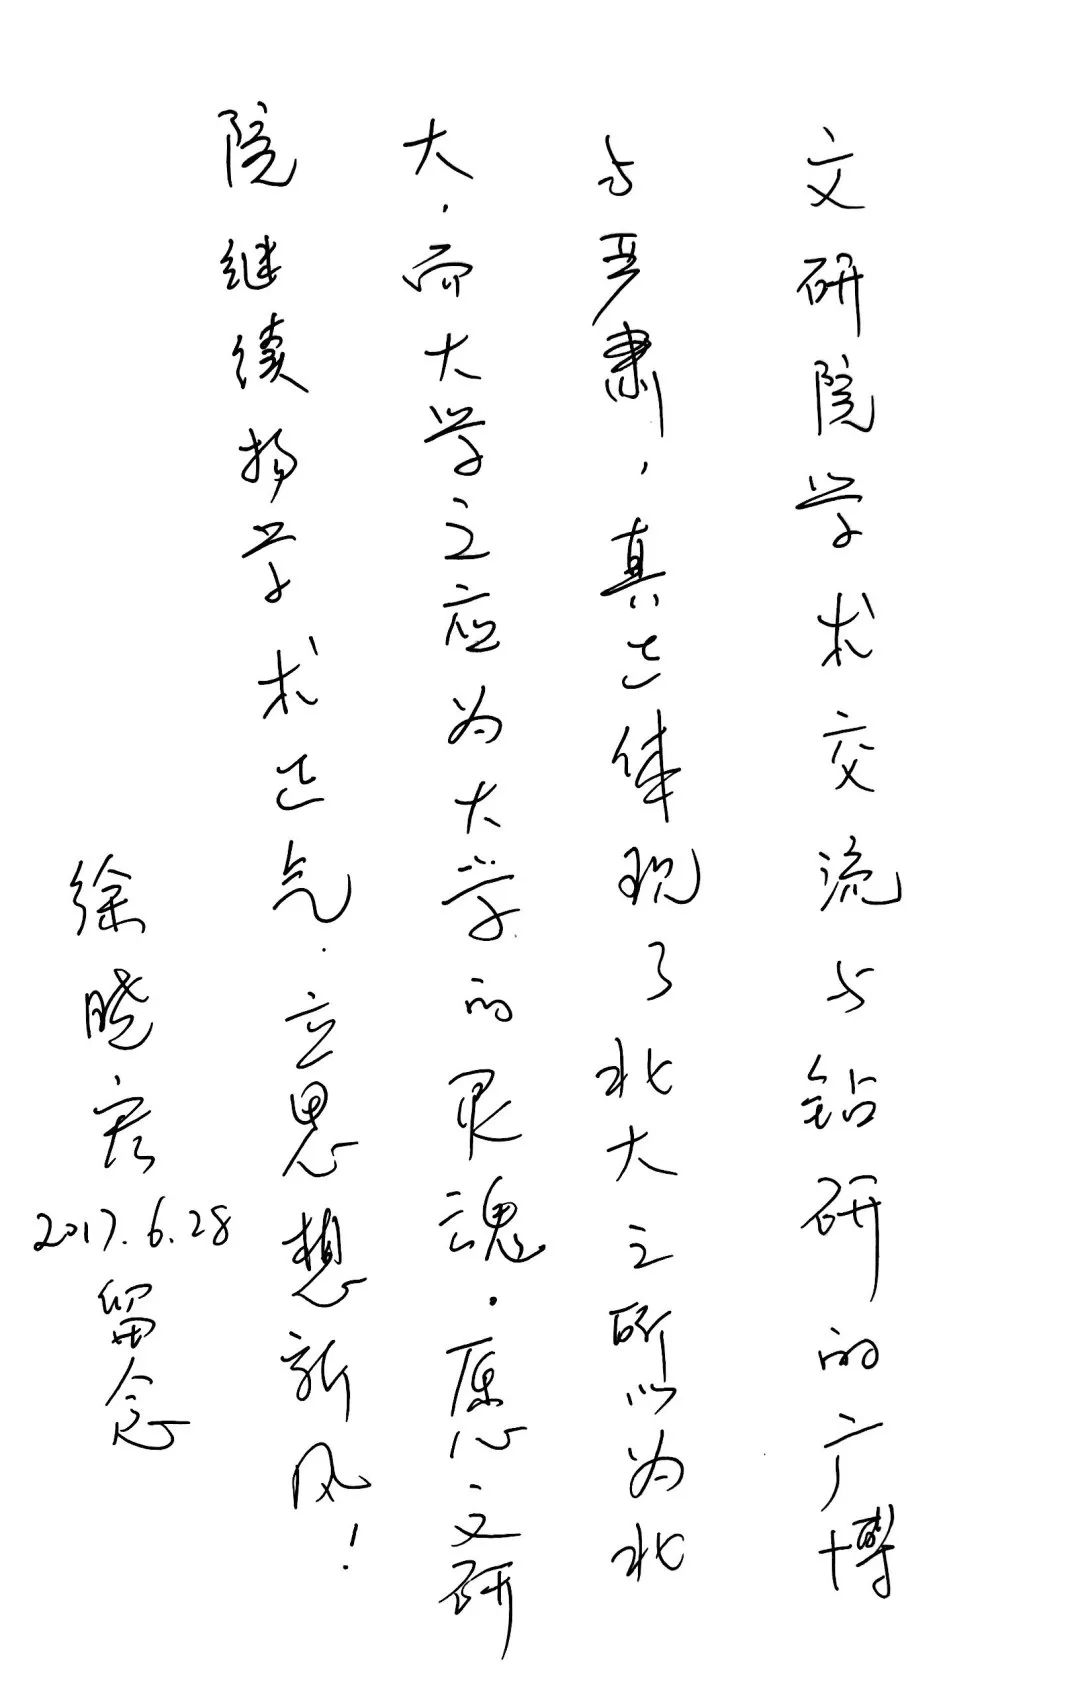 文研院学术交流与钻研的广博
与严肃，真正体现了北大之所以为北
大，而大学之应为大学的灵魂。愿文研
院继续扬学术正气，立思想新风！
徐晓宏
2017.6.28
留念